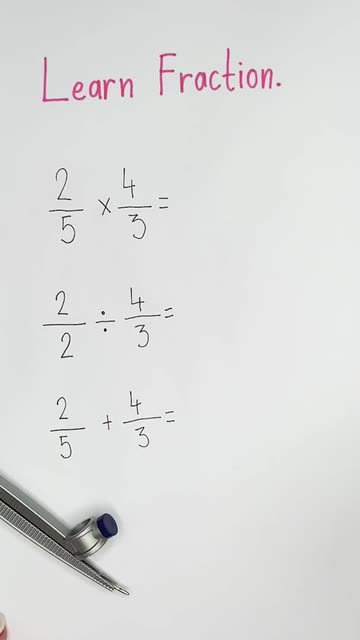 Learn Fraction.
2/5 × 4/3 =
2/2 ÷ 4/3 =
2/5 + 4/3 =